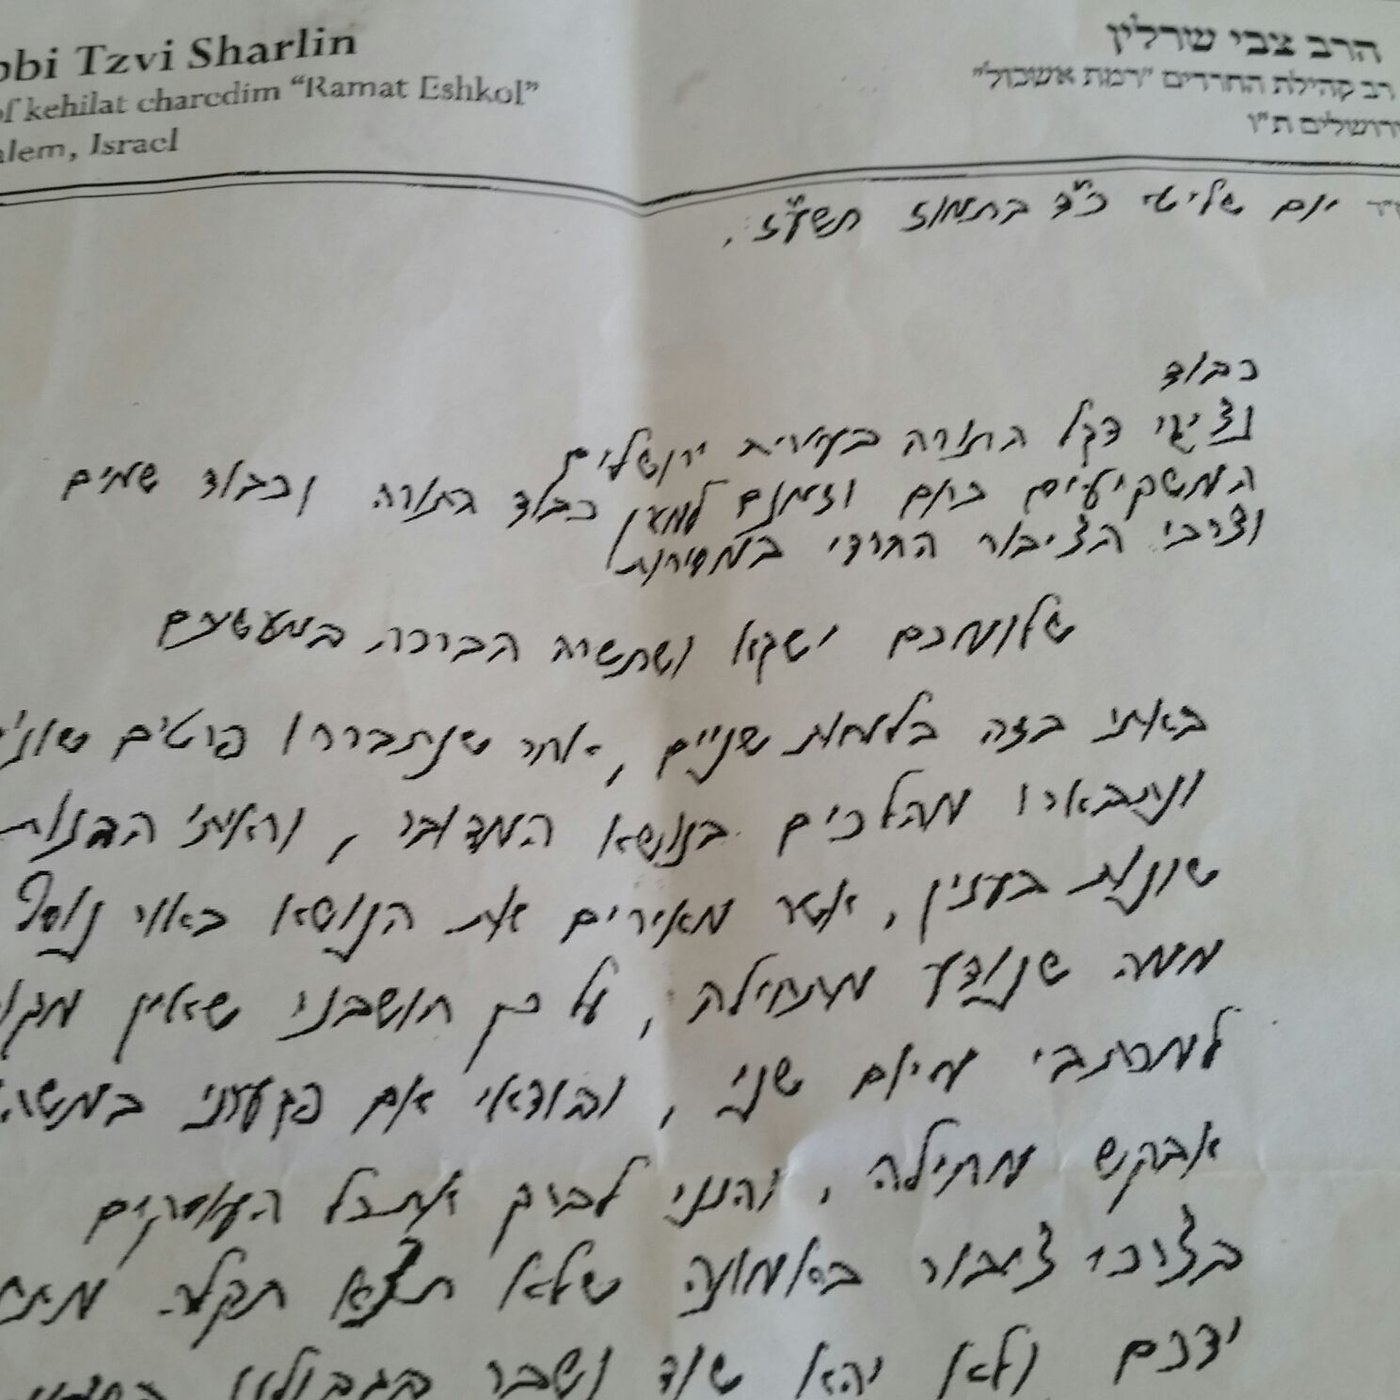 bbi Tzvi Sharlin
of kehilat charedim "Ramat Eshkol"
alem, Israel
הרב צבי שרלין
רב קהילת החרדים "רמת אשכול"
ירושלים ת"ו
יום שלישי כ"ד בתמוז תשע"ז.
כבוד
נציגי דגל התורה בעירית ירושלים
המשקיעים כוחם וזמנם למען כבוד התורה וכבוד שמים
וצרכי הציבור החרדי במסירות
שלומכם ישגא ושתשרה הברכה במעשיכם
באתי בזה בלוחות שניים, אחר שנתבררו פרטים שוני
ונתבארו מהלכים בנושא המדובר, וראיתי הבנות
שונות בענין, אשר מאירים את הנושא באור נוסף
ממה שנודע מתחילה, על כן חושבני שאין מקו
למכתבי מיום שני, ובודאי אם פגעתי במשהו
אבקש מחילה, והנני לברך את כל העוסקים
בצרכי ציבור באמונה שלא תצא תקלה מתח
ידכם ולא יהא שוד ושבר בגבולינו